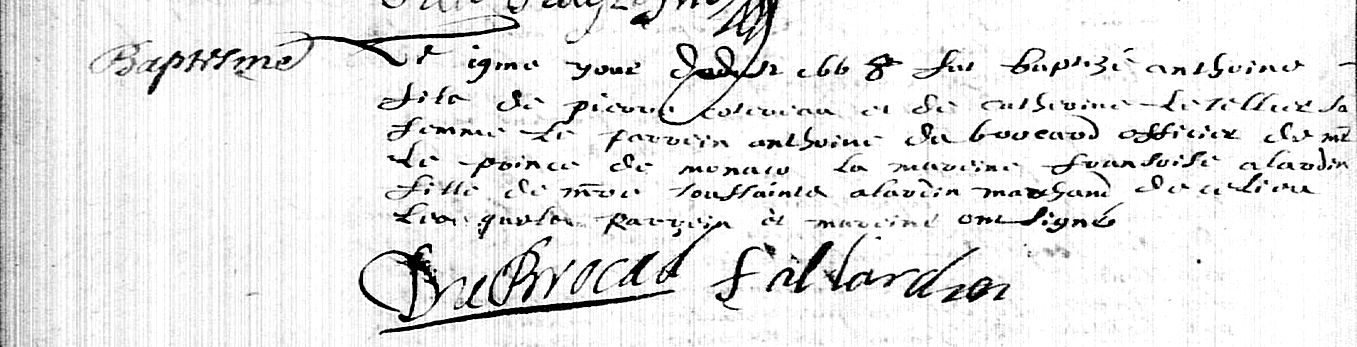 Baptesme
Le 19me jour d'aout 1668 fut baptizé anthoine
fils de pierre cotereau et de catherine Letellier sa
femme Le parrein anthoine du broccard officier de mr
Le prince de monaco La mareine fransoise alardin
fille de mre toussaints alardin marchand de ce lieu
Les quels parrein et mareine ont signé
Du Brocard f allardin